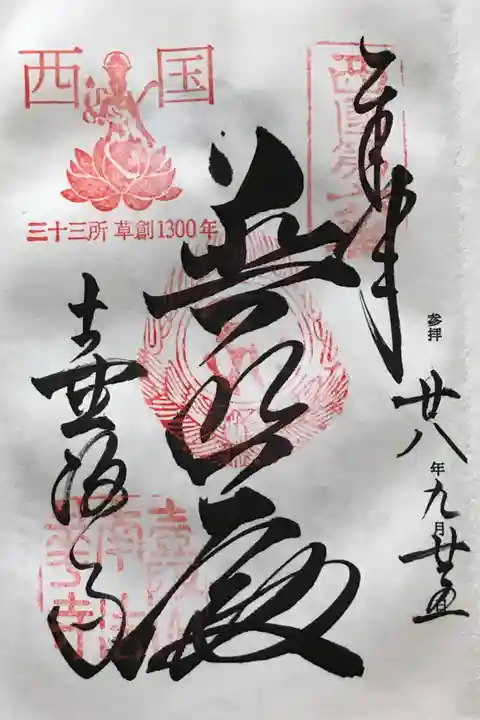 西国
三十三所 草創1300年
奉拝
西国第六番
参拝
廿八年九月廿五
普照殿
壺阪寺